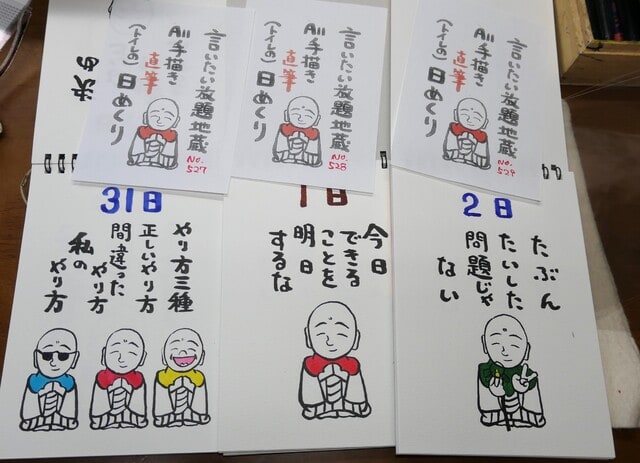 言いたい放題地蔵
All手描き
直筆
(トイレの)日めくり
No.
527
言いたい放題地蔵
All手描き
直筆
(トイレの)日めくり
No.
528
言いたい放題地蔵
All手描き
直筆
(トイレの)日めくり
No.
529
31日
やり方三種
正しいやり方
間違った
やり方
私の
やり方
1日
今日
できる
ことを
明日
するな
2日
たぶん
たいした
問題じゃ
ない